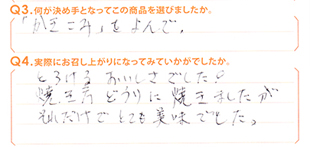 Q3.何が決め手となってこの商品を選びましたか。
「かきこみ」をよんで。
Q4.実際にお召し上がりになってみていかがでしたか。
とろけるおいしさでした!
焼き方どうりに焼きましたが
それだけでとても美味でした。